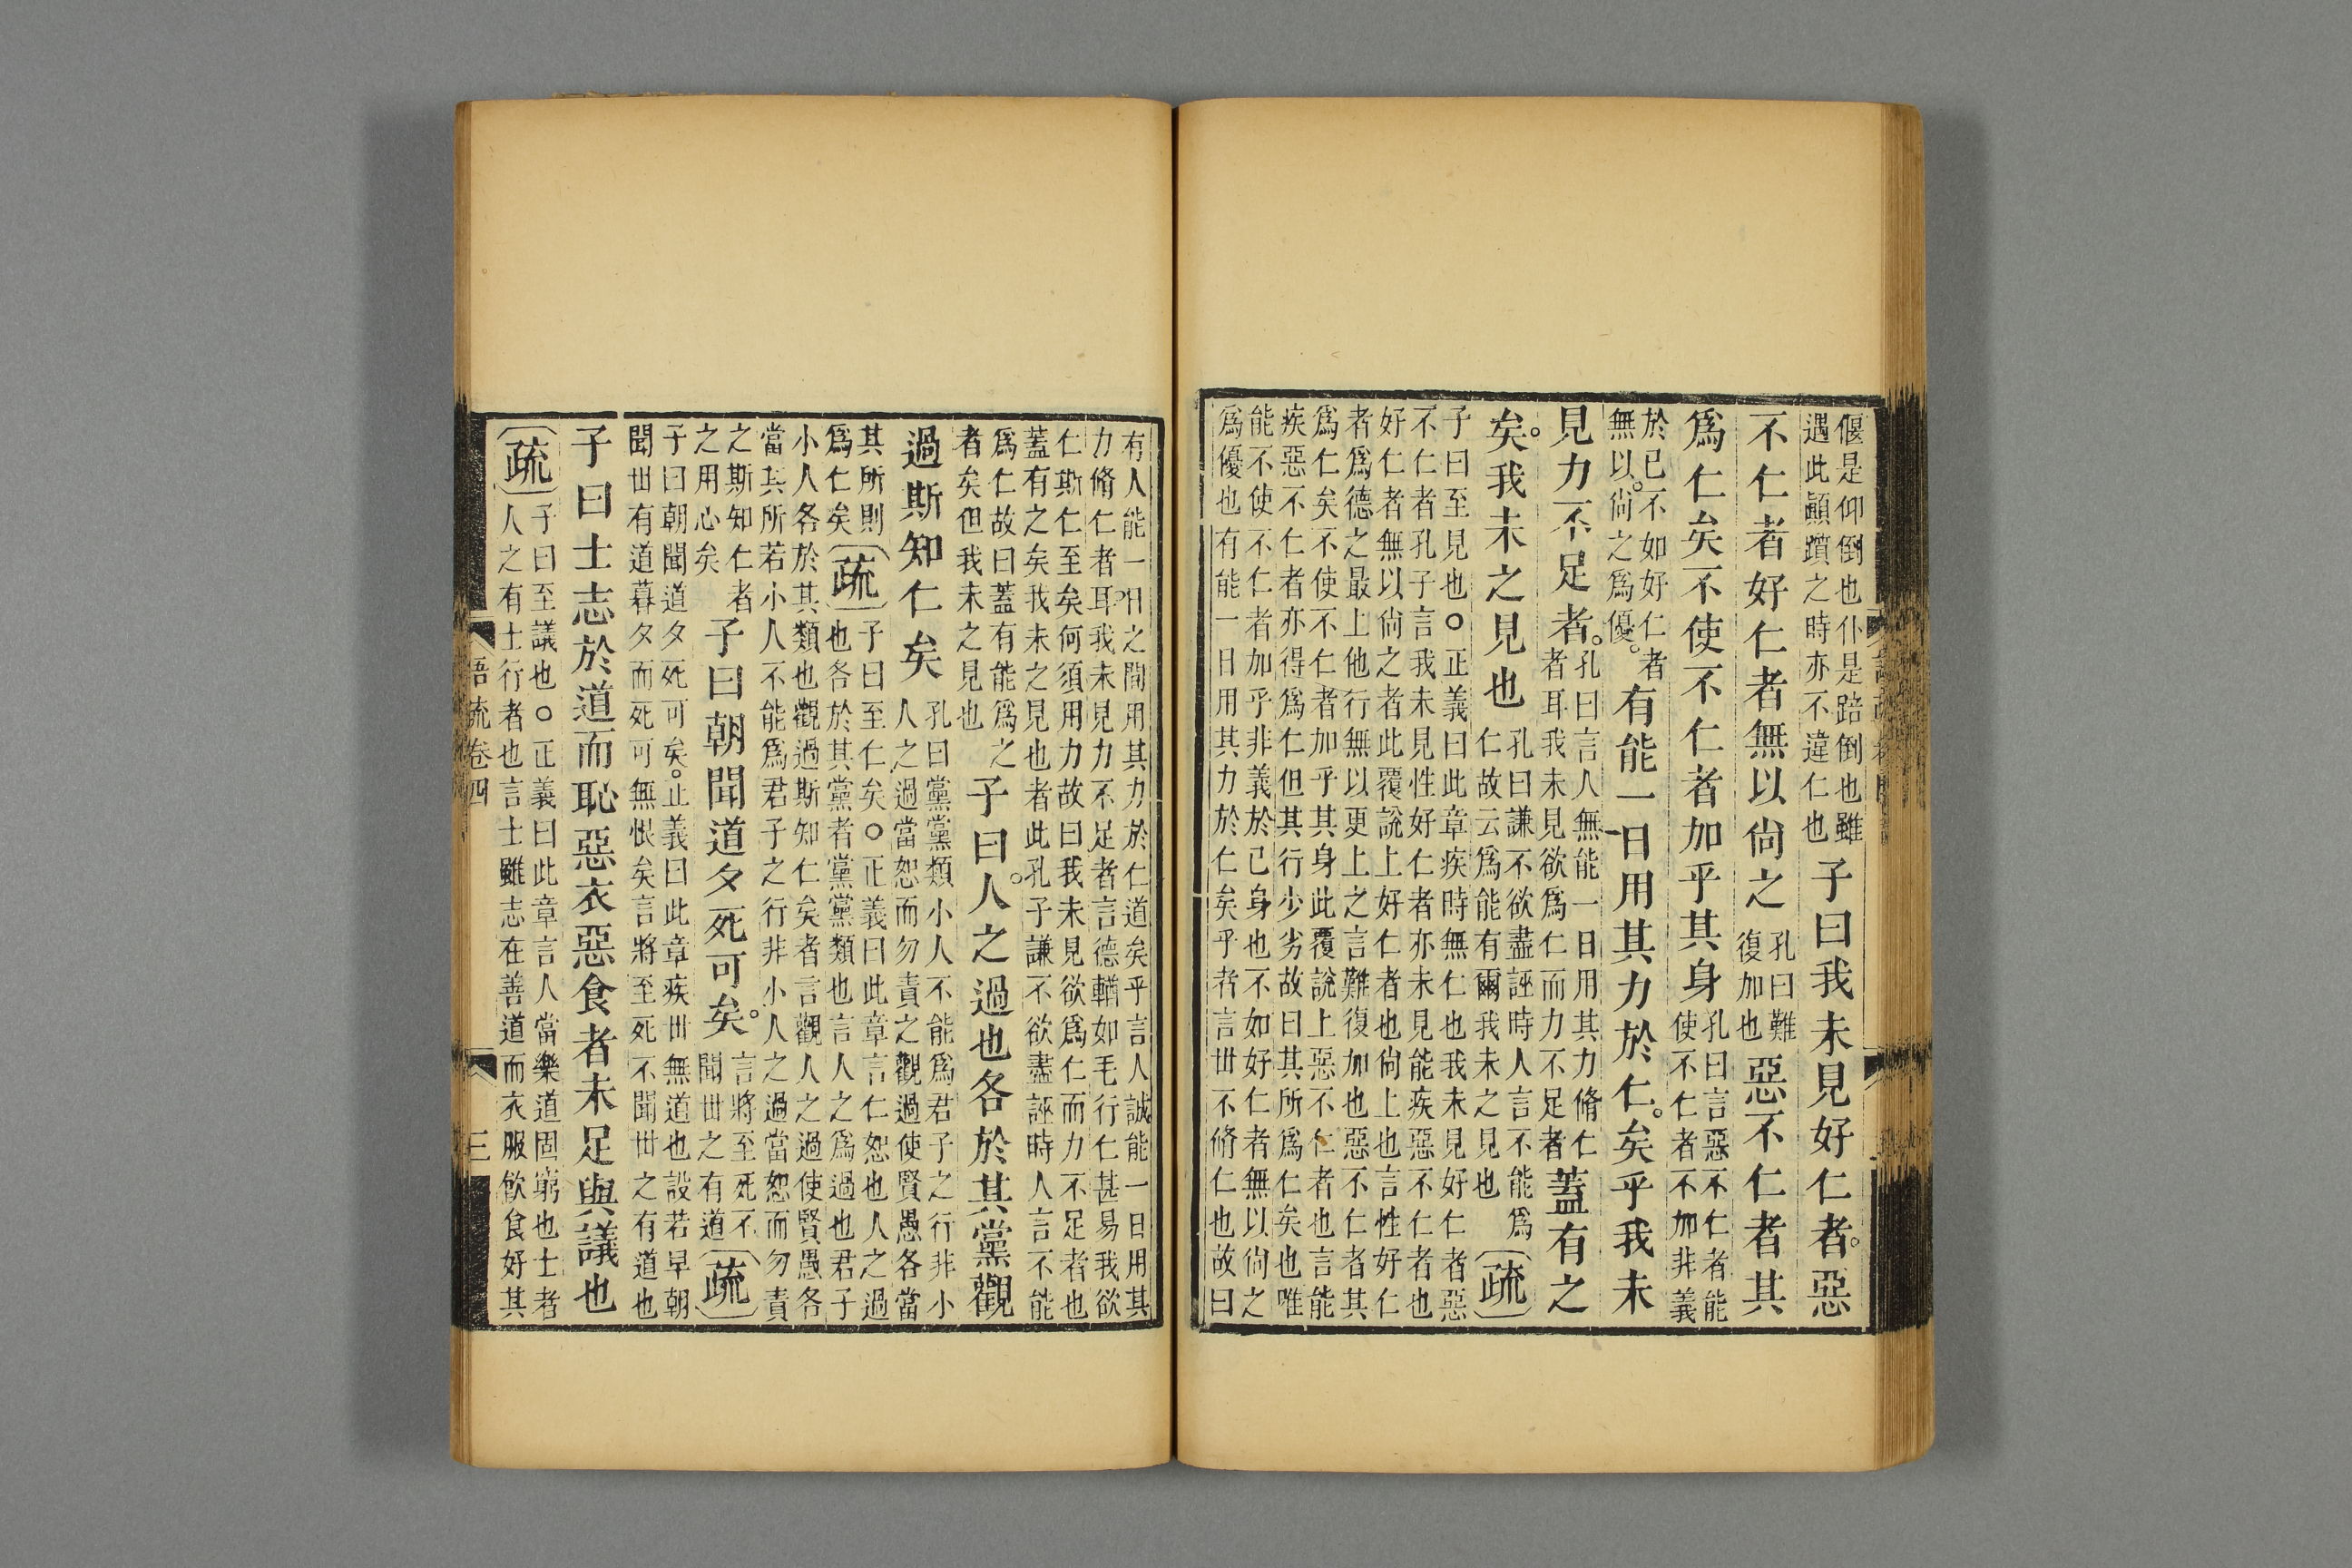 偃是仰倒也仆是踣倒也雖
遇此顚躓之時亦不違仁也
子曰我未見好仁者。惡
不仁者好仁者無以尙之
孔曰難
復加也
惡不仁者其
爲仁矣不使不仁者加乎其身
孔曰言惡不仁者能
使不仁者不加非義
於己不如好仁者
無以。尙之爲優。
有能一日用其力於仁。矣乎我未
見力不足者。
孔曰言人無能一日用其力脩仁
者耳我未見欲爲仁而力不足者
蓋有之
矣。我未之見也
孔曰謙不欲盡誣時人言不能爲
仁故云爲能有爾我未之見也
疏
子曰至見也○正義曰此章疾時無仁也我未見好仁者惡
不仁者孔子言我未見性好仁者亦未見能疾惡不仁者也
好仁者無以尙之者此覆說上好仁者也尙上也言性好仁
者爲德之最上他行無以更上之言難復加也惡不仁者其
爲仁矣不使不仁者加乎其身此覆說上惡不仁者也言能
疾惡不仁者亦得爲仁但其行少劣故曰其所爲仁矣也唯
能不使不仁者加乎非義於己身也不如好仁者無以尙之
爲優也有能一日用其力於仁矣乎者言世不脩仁也故曰
有人能一日之間用其力於仁道矣乎言人誠能一日用其
力脩仁者耳我未見力不足者言德輶如毛行仁甚易我欲
仁斯仁至矣何須用力故曰我未見欲爲仁而力不足者也
蓋有之矣我未之見也者此孔子謙不欲盡誣時人言不能
爲仁故曰蓋有能爲之
者矣但我未之見也
子曰。人之過也各於其黨觀
過斯知仁矣
孔曰黨黨類小人不能爲君子之行非小
人之過當恕而勿責之觀過使賢愚各當
其所則
爲仁矣
疏
子曰至仁矣○正義曰此章言仁恕也人之過
也各於其黨者黨黨類也言人之爲過也君子
小人各於其類也觀過斯知仁矣者言觀人之過使賢愚各
當其所若小人不能爲君子之行非小人之過當恕而勿責
之斯知仁者
之用心矣
子曰朝聞道夕死可矣。
言將至死不
聞世之有道
疏
子曰朝聞道夕死可矣。正義曰此章疾世無道也設若早朝
聞世有道暮夕而死可無恨矣言將至死不聞世之有道也
子曰士志於道而恥惡衣惡食者未足與議也
疏
子曰至議也○正義曰此章言人當樂道固窮也士者
人之有士行者也言士雖志在善道而衣服飮食好其
語疏卷四
三